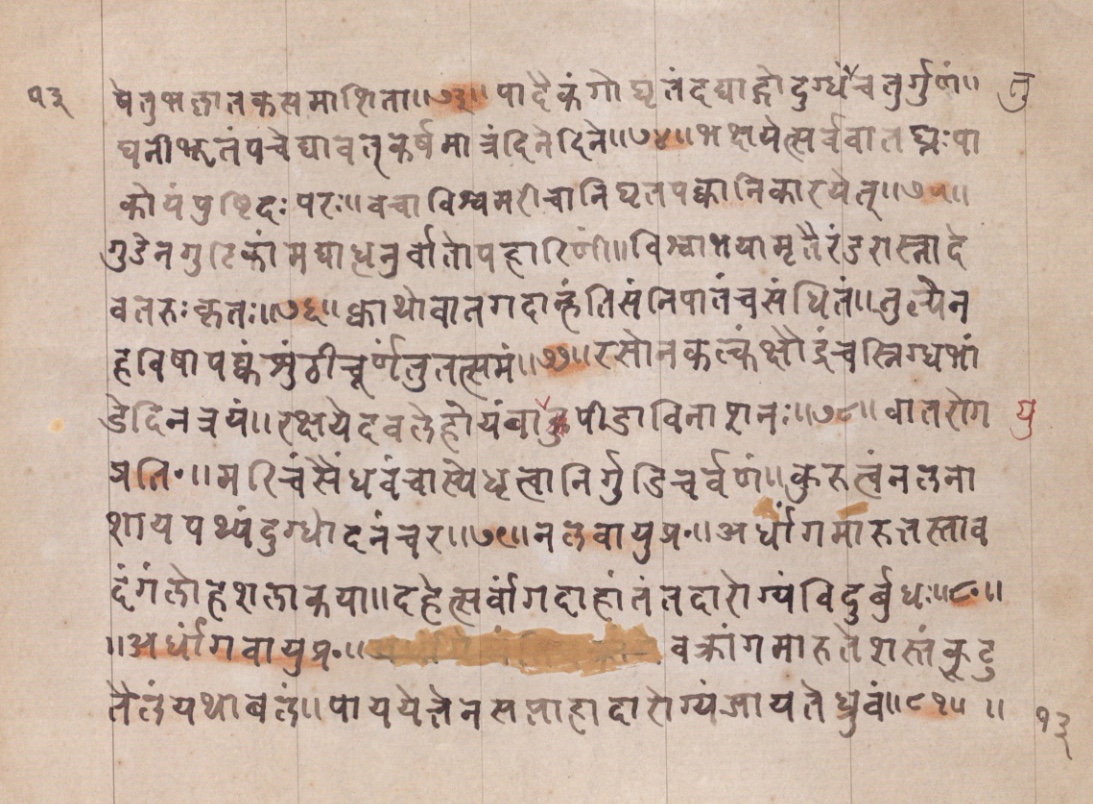 १३ षेतुभल्लातकसमाशिता॥७३॥ पादैकंगोघृतंदद्याद्गोदुग्धंचैचतुर्गुणं॥ तु
घनीभूतंपचेद्यावत्कर्षमात्रंदिनेदिने॥७४॥भक्षयेत्सर्ववातघ्नःपा
कोयंपुष्टिदःपरः॥वचाविश्वमरीचानिघृतपक्वानिकारयेत्॥७५॥
गुडेनगुटिकांमद्याधनुर्वातोपहारिणी॥विश्वाभयामृतैरंडरास्नादे
वतरुःकृतः॥७६॥क्वाथोवातगदान्हंतिसंनिपातंचसंधितं॥तुल्येन
हविषापक्वंशुंठीचूर्णंतुतत्समं॥७७॥रसोनकल्कंक्षौद्रंचस्निग्धभां
डेदिनत्रयं॥रक्षयेदवलेहोयंवापीडाविनाशनः॥७८॥वातरोग यु
प्रति॰॥मरिचंसैंधवंचास्येधृत्वानिर्गुडिचर्वणं॥कुरुत्वंनलना
शायपथ्यंदुग्धोदनंचर॥७९॥नलवायुप्र॰॥अर्धांगमारुतस्ताव
दंगंलोहशलाकया॥दहेत्सर्वांगदाहांतंतदारोग्यंविदुर्बुधः॥८॰॥
॥अर्धांगवायुप्र॰॥ वक्रांगमारुतेशस्तंकूटु
तैलंयथाबलं॥पाययेत्तेनसप्ताहादारोग्यंजायतेध्रुवं॥८१॥ ॥ १३